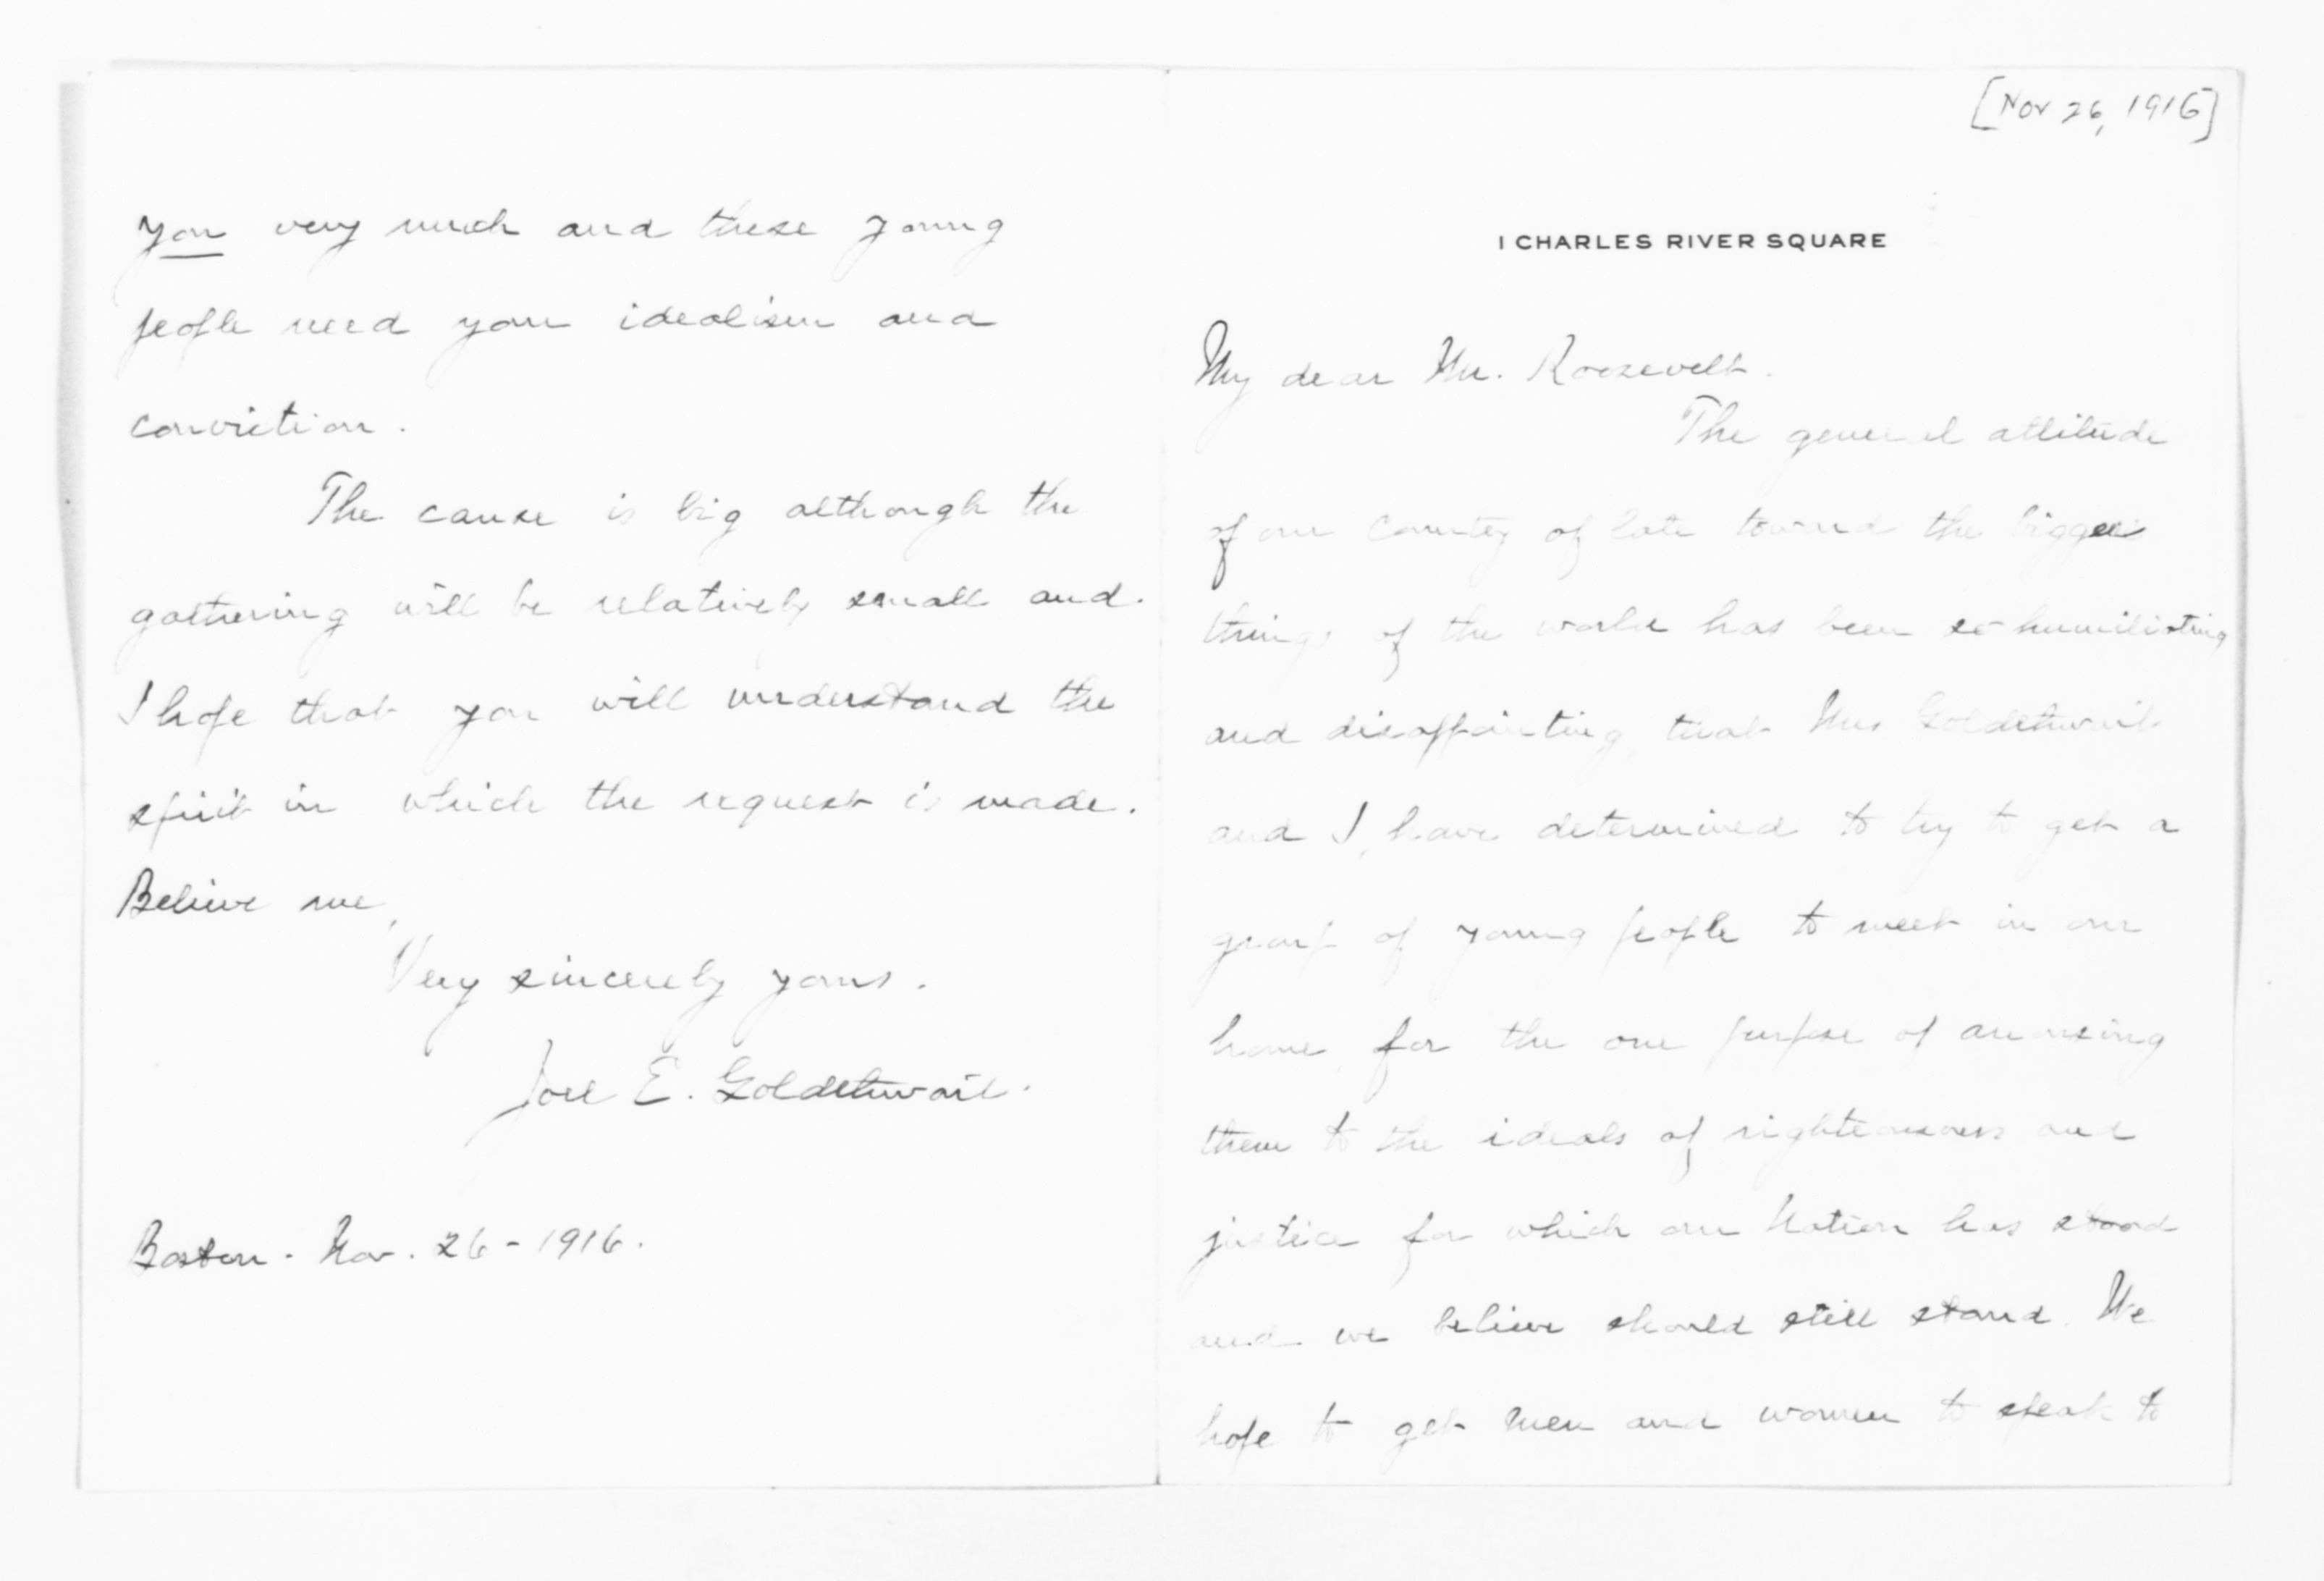 [Nov 26, 1916]
1 CHARLES RIVER SQUARE
My dear Mr. Roosevelt.
The general attitude
of our Country of late toward the bigger
things of the world has been so humiliating
and disappointing, that Mrs Goldthwait
and I, have determined to try to get a
group of young people to meet in our
home, for the one purpose of arousing
them to the ideals of righteousness and
justice for which our Nation has stood
and we believe should still stand. We
hope to get men and women to speak to
you very much and these young
people need your idealism and
conviction.
The cause is big although the
gathering will be relatively small and
I hope that you will understand the
spirit in which the request is made.
Believe me,
Very sincerely yours.
Joel E. Goldthwait.
Boston - Nov. 26 - 1916.